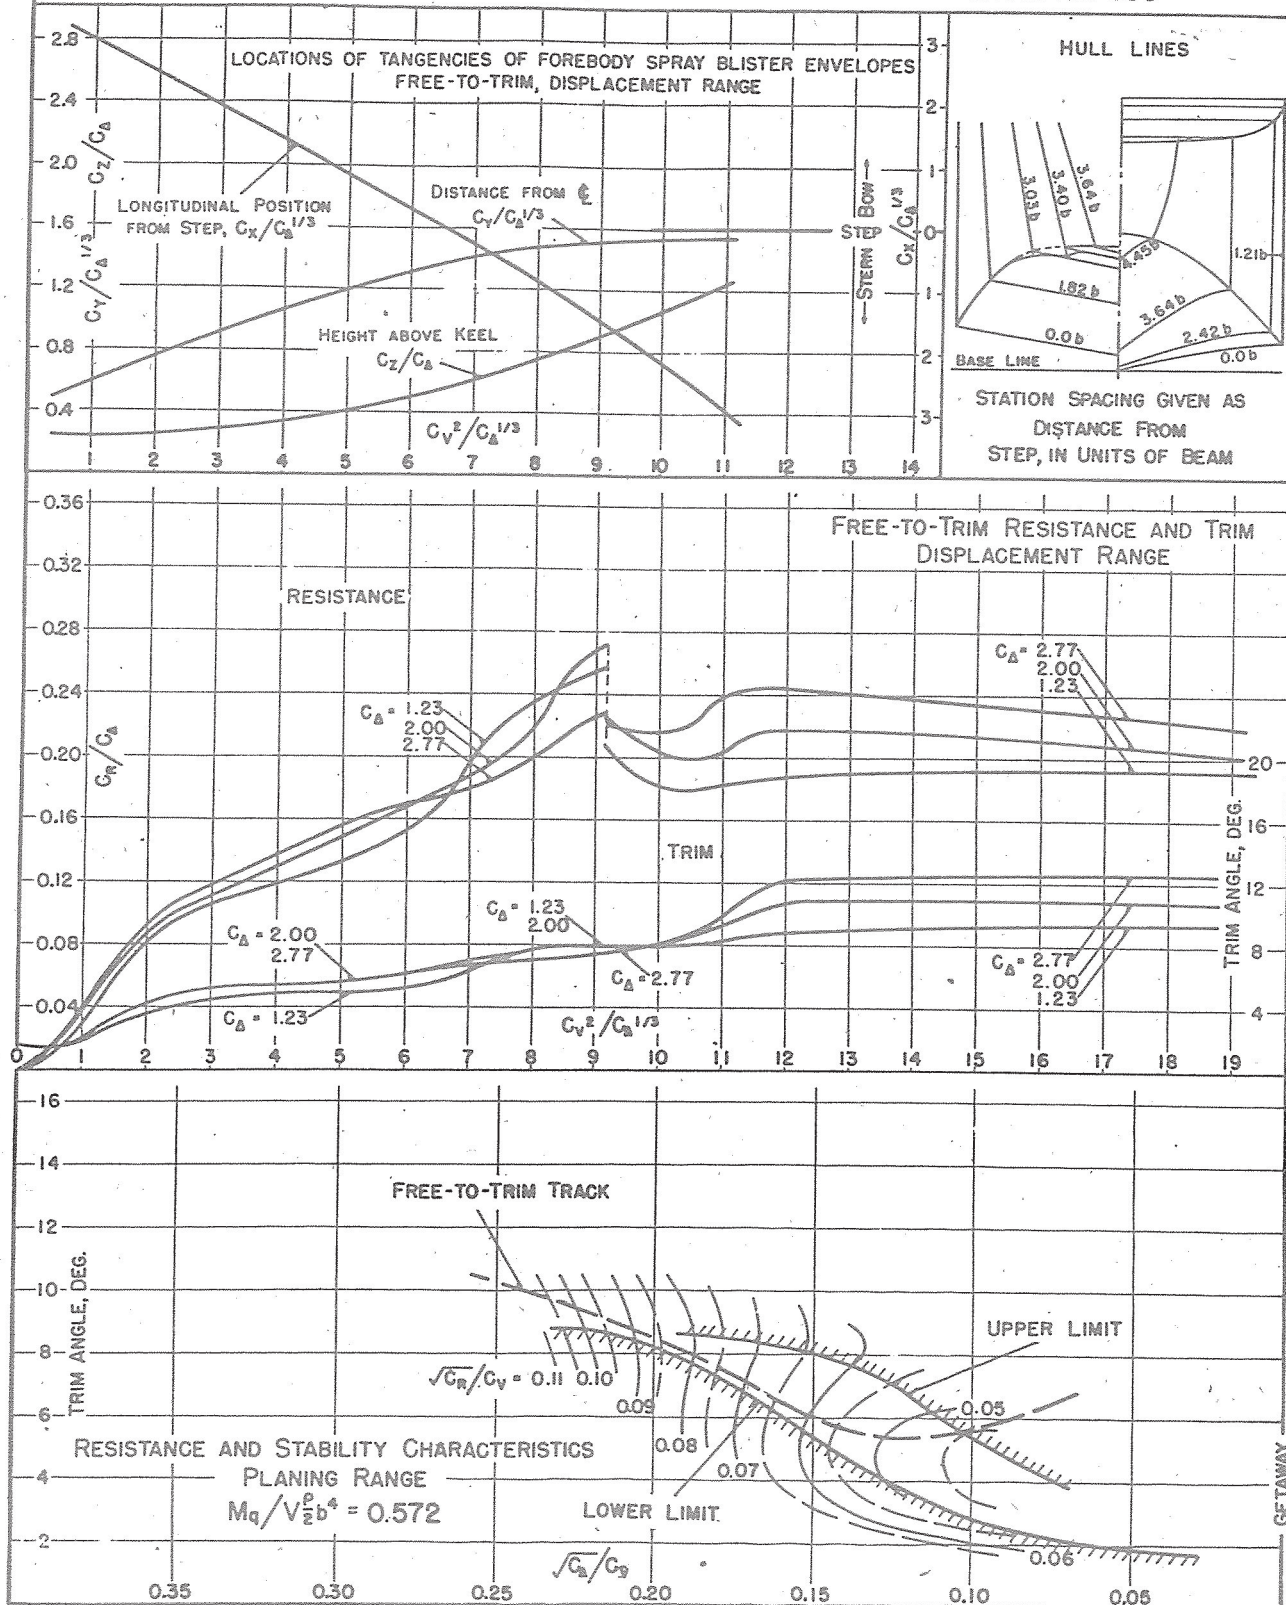 LOCATIONS OF TANGENCIES OF FOREBODY SPRAY BLISTER ENVELOPES
FREE-TO-TRIM, DISPLACEMENT RANGE
2.8
2.4
2.0
1.6
1.2
0.8
0.4
C_Y/C_Δ^1/3 — C_Z/C_Δ
LONGITUDINAL POSITION
FROM STEP, C_X/C_Δ^1/3
DISTANCE FROM ℄
C_Y/C_Δ^1/3
HEIGHT ABOVE KEEL
C_Z/C_Δ
C_V²/C_Δ^1/3
1 2 3 4 5 6 7 8 9 10 11 12 13 14
←STERN BOW→
STEP
C_X/C_Δ^1/3
3
2
1
0
1
2
3
HULL LINES
3.03 b
3.40 b
3.64 b
4.45 b
1.21 b
1.82 b
3.64 b
0.0 b
2.42 b
0.0 b
BASE LINE
STATION SPACING GIVEN AS
DISTANCE FROM
STEP, IN UNITS OF BEAM
FREE-TO-TRIM RESISTANCE AND TRIM
DISPLACEMENT RANGE
0.36
0.32
0.28
0.24
0.20
0.16
0.12
0.08
0.04
C_R/C_Δ
RESISTANCE
C_Δ = 1.23
2.00
2.77
C_Δ = 2.77
2.00
1.23
TRIM
C_Δ = 1.23
2.00
C_Δ = 2.00
2.77
C_Δ = 2.77
C_Δ = 1.23
C_Δ = 2.77
2.00
1.23
C_V²/C_Δ^1/3
0 1 2 3 4 5 6 7 8 9 10 11 12 13 14 15 16 17 18 19
TRIM ANGLE, DEG.
20
16
12
8
4
16
14
12
10
8
6
4
2
TRIM ANGLE, DEG.
FREE-TO-TRIM TRACK
UPPER LIMIT
√C_R/C_V = 0.11 0.10
0.09
0.08
0.07
0.05
0.06
LOWER LIMIT
RESISTANCE AND STABILITY CHARACTERISTICS
PLANING RANGE
M_q/V ρ/2 b⁴ = 0.572
GETAWAY
0.35 0.30 0.25 0.20 0.15 0.10 0.05